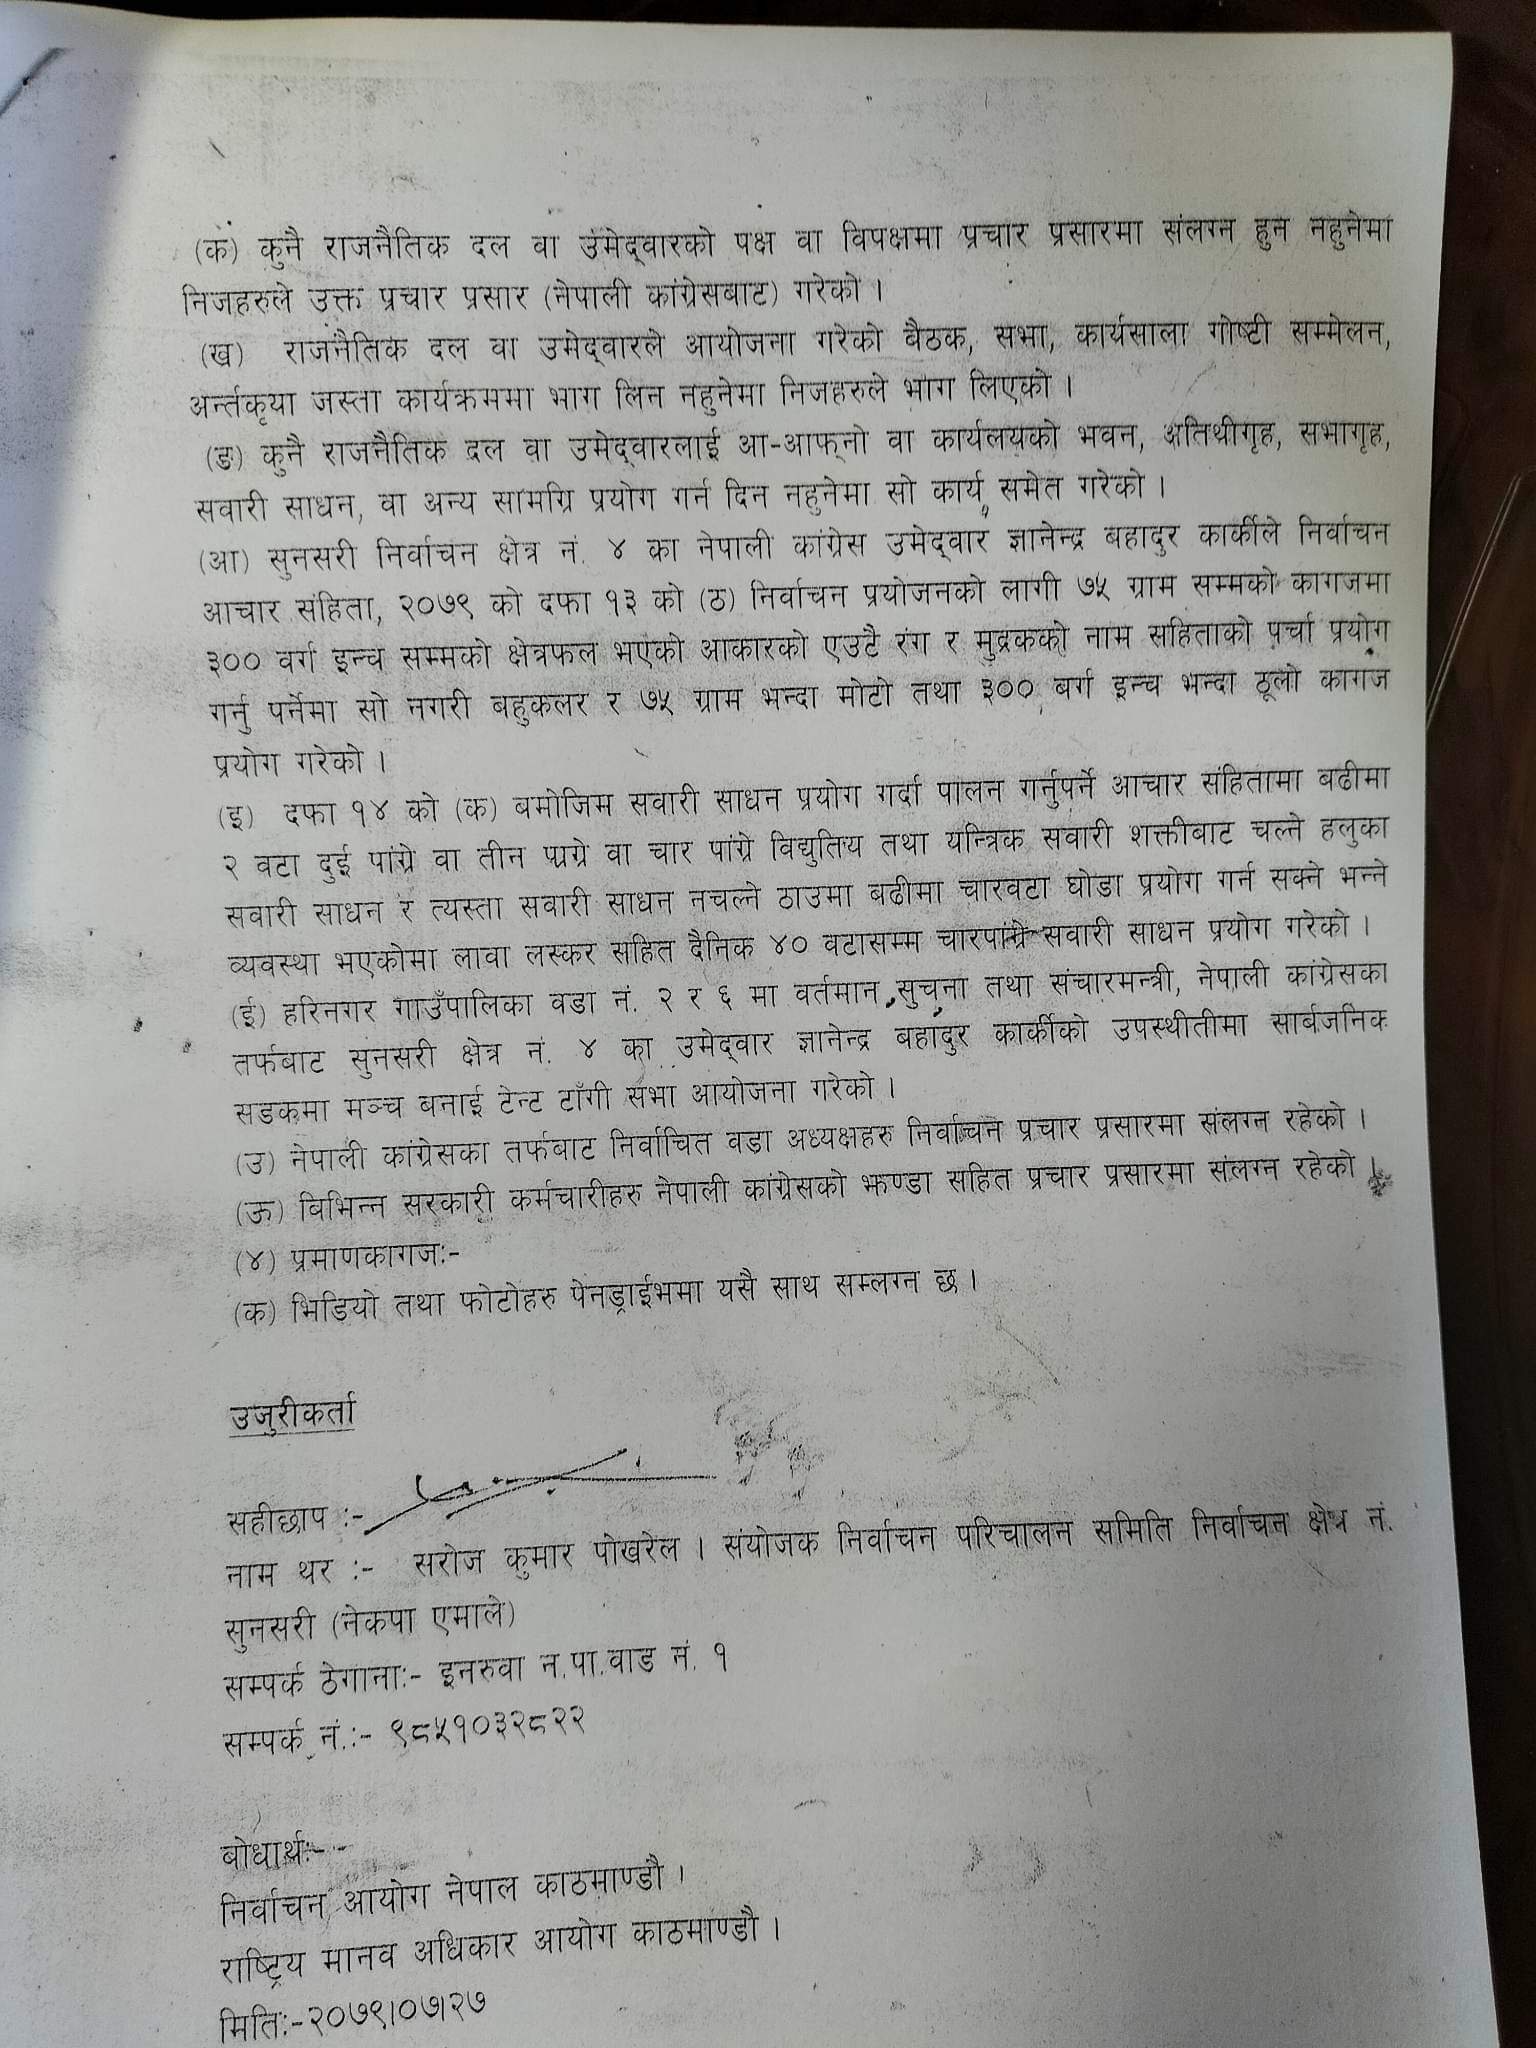 (क) कुनै राजनैतिक दल वा उमेद्वारको पक्ष वा विपक्षमा प्रचार प्रसारमा संलग्न हुन नहुनेमा
निजहरुले उक्त प्रचार प्रसार (नेपाली कांग्रेसबाट) गरेको ।
(ख) राजनैतिक दल वा उमेद्वारले आयोजना गरेको बैठक, सभा, कार्यसाला गोष्टी सम्मेलन,
अर्न्तकृया जस्ता कार्यक्रममा भाग लिन नहुनेमा निजहरुले भाग लिएको ।
(ङ) कुनै राजनैतिक दल वा उमेद्वारलाई आ-आफ्नो वा कार्यलयको भवन, अतिथीगृह, सभागृह,
सवारी साधन, वा अन्य सामग्रि प्रयोग गर्न दिन नहुनेमा सो कार्य समेत गरेको ।
(आ) सुनसरी निर्वाचन क्षेत्र नं. ४ का नेपाली कांग्रेस उमेद्वार ज्ञानेन्द्र बहादुर कार्कीले निर्वाचन
आचार संहिता, २०७९ को दफा १३ को (ठ) निर्वाचन प्रयोजनको लागी ७५ ग्राम सम्मको कागजमा
३०० वर्ग इन्च सम्मको क्षेत्रफल भएको आकारको एउटै रंग र मुद्रकको नाम सहिताको पर्चा प्रयोग
गर्नु पर्नेमा सो नगरी बहुकलर र ७५ ग्राम भन्दा मोटो तथा ३०० बर्ग इन्च भन्दा ठूलो कागज
प्रयोग गरेको ।
(इ) दफा १४ को (क) बमोजिम सवारी साधन प्रयोग गर्दा पालन गर्नुपर्ने आचार संहितामा बढीमा
२ वटा दुई पांग्रे वा तीन पाग्रे वा चार पांग्रे विद्युतिय तथा यन्त्रिक सवारी शक्तीबाट चल्ने हलुका
सवारी साधन र त्यस्ता सवारी साधन नचल्ने ठाउमा बढीमा चारवटा घोडा प्रयोग गर्न सक्ने भन्ने
व्यवस्था भएकोमा लावा लस्कर सहित दैनिक ४० वटासम्म चारपांग्रे सवारी साधन प्रयोग गरेको ।
(ई) हरिनगर गाउँपालिका वडा नं. २ र ६ मा वर्तमान सुचना तथा संचारमन्त्री, नेपाली कांग्रेसका
तर्फबाट सुनसरी क्षेत्र नं. ४ का उमेद्वार ज्ञानेन्द्र बहादुर कार्कीको उपस्थीतीमा सार्बजनिक
सडकमा मञ्च बनाई टेन्ट टाँगी सभा आयोजना गरेको ।
(उ) नेपाली कांग्रेसका तर्फबाट निर्वाचित वडा अध्यक्षहरु निर्वाचन प्रचार प्रसारमा संलग्न रहेको ।
(ऊ) विभिन्न सरकारी कर्मचारीहरु नेपाली कांग्रेसको झण्डा सहित प्रचार प्रसारमा संलग्न रहेको ।
(४) प्रमाणकागज:-
(क) भिडियो तथा फोटोहरु पेनड्राईभमा यसै साथ सम्लग्न छ ।
उजुरीकर्ता
सहीछाप :-
नाम थर :- सरोज कुमार पोखरेल । संयोजक निर्वाचन परिचालन समिति निर्वाचन क्षेत्र नं.
सुनसरी (नेकपा एमाले)
सम्पर्क ठेगाना:- इनरुवा न.पा.वाड नं. १
सम्पर्क नं.:- ९८५१०३२८२२
बोधार्थ:-
निर्वाचन आयोग नेपाल काठमाण्डौ ।
राष्ट्रिय मानव अधिकार आयोग काठमाण्डौ ।
मिति:-२०७९।०७।२७